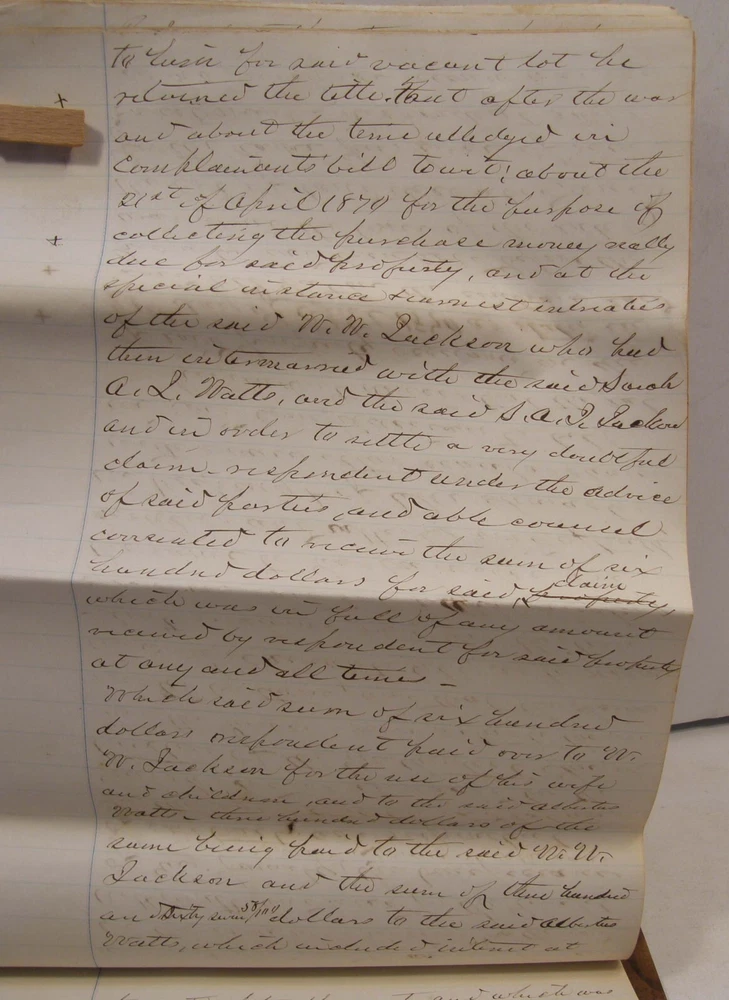 to him for said vacant lot he
retained the title. That after the war
and about the time alledged in
Complainants bill to wit; about the
21st of April 1870 for the purpose of
collecting the purchase money really
due for said property, and at the
special instance & earnest intreaties
of the said W. W. Jackson who had
then intermarried with the said Sarah
A. I. Watts, and the said S. A. I. Jackson
and in order to settle a very doubtful
claim - respondent under the advice
of said parties, and able counsel
consented to receive the sum of six
hundred dollars for said claim property,
which was in full of any amount
received by respondent for said property
at any and all times -
Which said sum of six hundred
dollars respondent paid over to W.
W. Jackson for the use of his wife
and children, and to the said Albertus
Watts - three hundred dollars of the
same being paid to the said W. W.
Jackson and the sum of three hundred
and sixty seven 50/100 dollars to the said Albertus
Watts, which included interest at
and which was